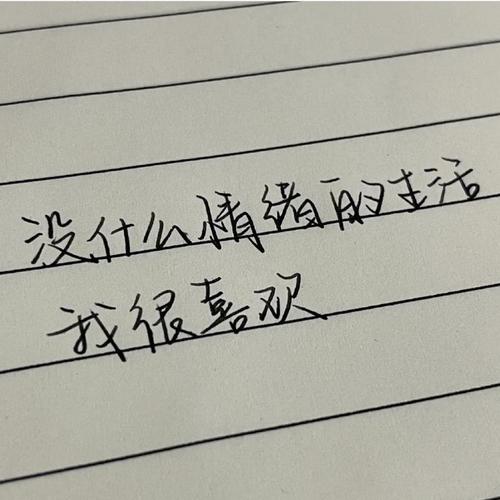 没什么情绪的生活
我很喜欢